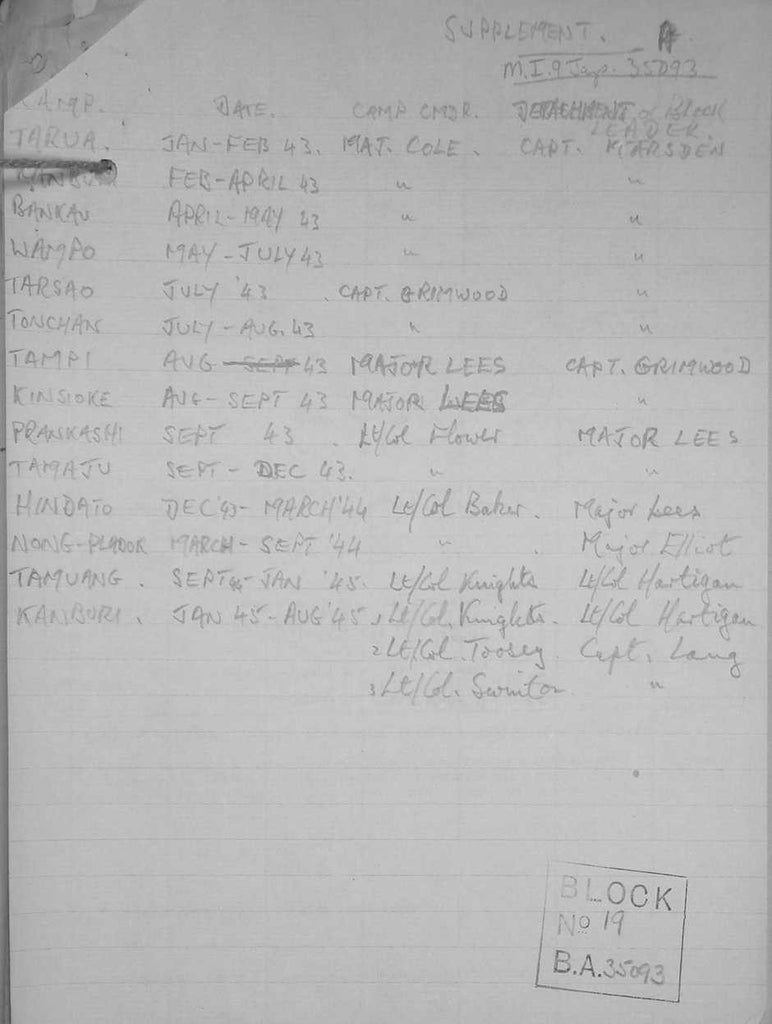 SUPPLEMENT. A.
M.I.9 Jap. 35093
CAMP. DATE. CAMP CMDR. DETACHMENT or Block
LEADER.
TARUA. JAN-FEB 43. MAJ. COLE. CAPT. MARSDEN
KANBURI FEB-APRIL 43 " "
BANKAU APRIL-MAY 43 " "
WAMPO MAY-JULY 43 "
TARSAO JULY '43 . CAPT. GRIMWOOD "
TONCHAN JULY-AUG. 43 " "
TAMPI AUG-SEPT 43 MAJOR LEES CAPT. GRIMWOOD
KINSIOKE AUG-SEPT 43 MAJOR LEES "
PRANKASHI SEPT 43 . Lt/Col Flower MAJOR LEES
TAMAJU SEPT - DEC 43. " "
HINDATO DEC '43 - MARCH '44 Lt/Col Baker. Major Lees
NONG-PLADOK MARCH - SEPT '44 " . Major Elliot
TAMUANG. SEPT 44 - JAN '45. Lt/Col Knights Lt/Col Hartigan
KANBURI. JAN 45 - AUG '45 1 Lt/Col. Knights. Lt/Col Hartigan
2 Lt/Col. Toosey. Capt. Lang
3 Lt/Col. Swinton "
BLOCK
No 19
B.A. 35093